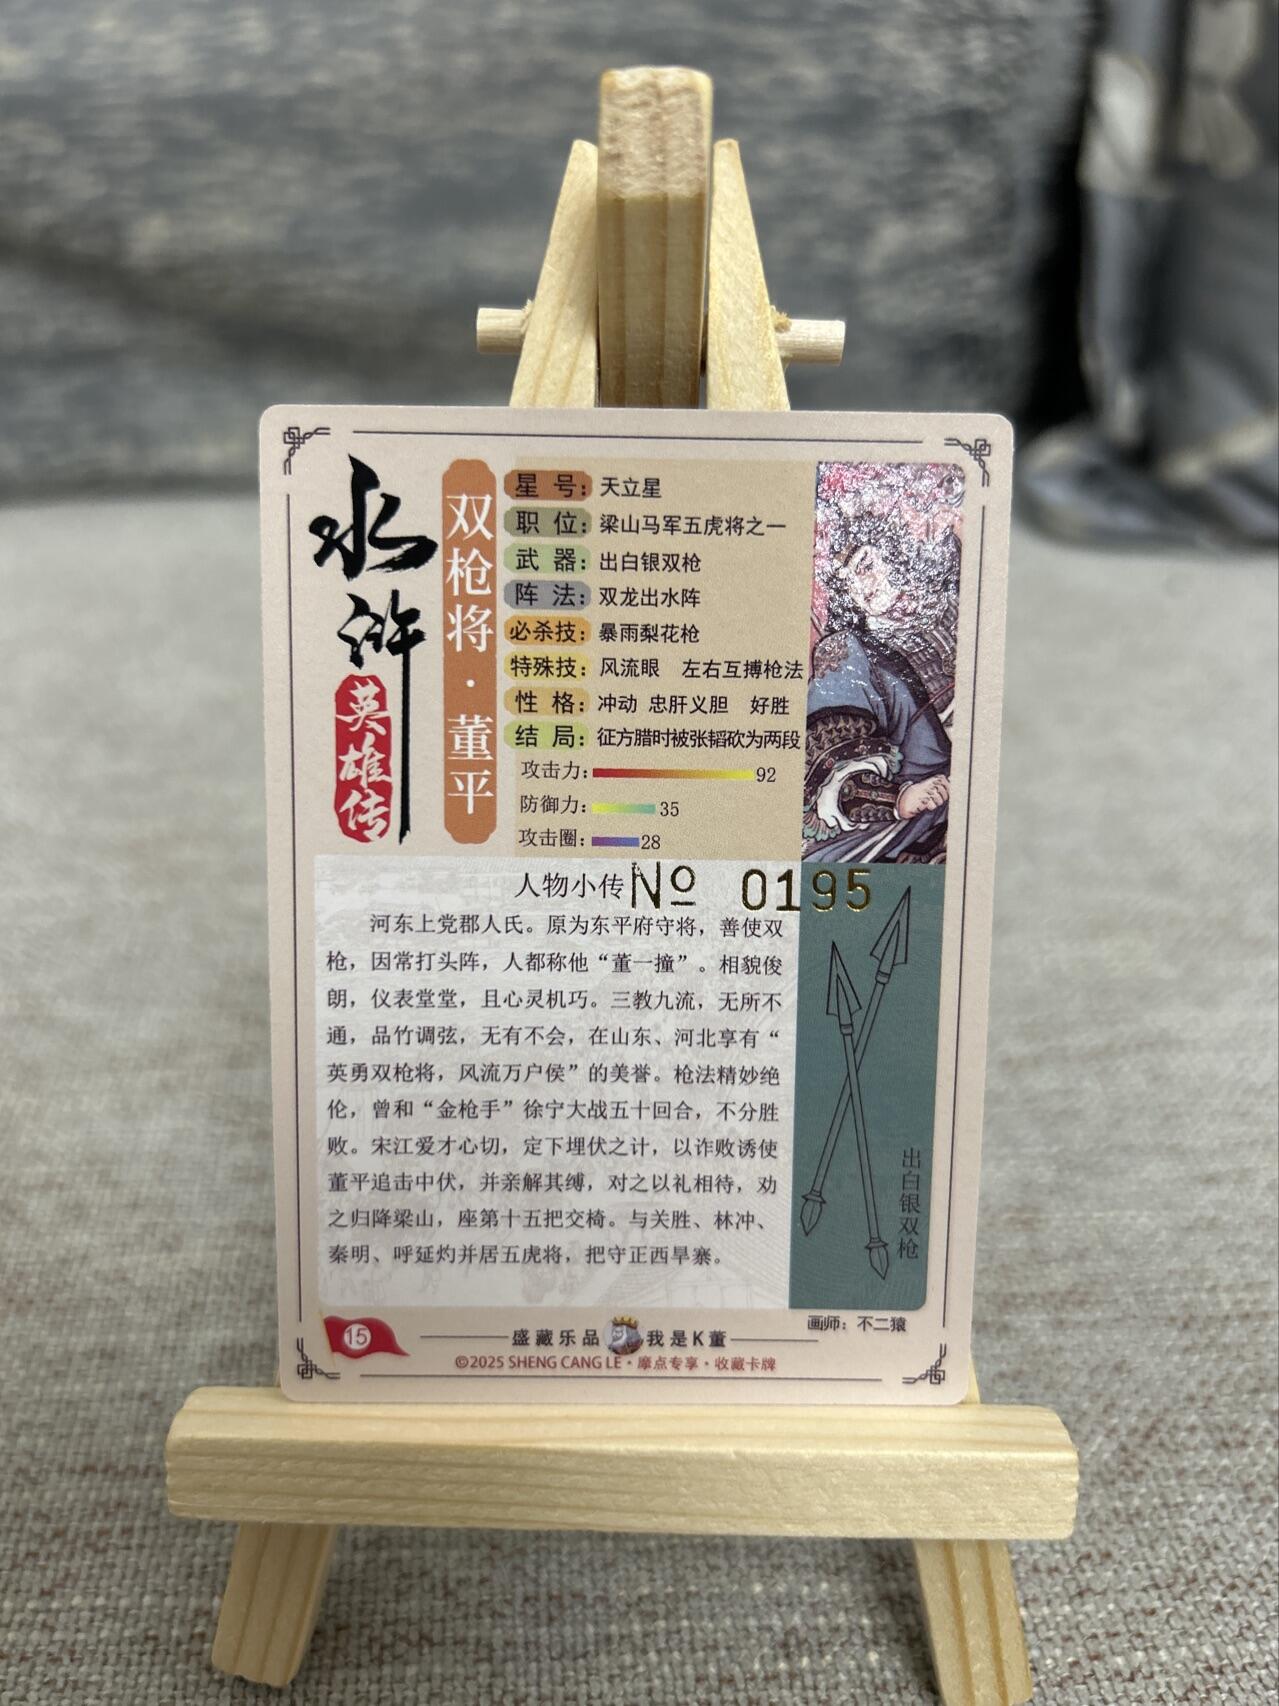 水浒
英雄传
双枪将·董平
星号：天立星
职位：梁山马军五虎将之一
武器：出白银双枪
阵法：双龙出水阵
必杀技：暴雨梨花枪
特殊技：风流眼 左右互搏枪法
性格：冲动 忠肝义胆 好胜
结局：征方腊时被张韬砍为两段
攻击力：92
防御力：35
攻击圈：28
人物小传 № 0195
河东上党郡人氏。原为东平府守将，善使双
枪，因常打头阵，人都称他“董一撞”。相貌俊
朗，仪表堂堂，且心灵机巧。三教九流，无所不
通，品竹调弦，无有不会，在山东、河北享有“
英勇双枪将，风流万户侯”的美誉。枪法精妙绝
伦，曾和“金枪手”徐宁大战五十回合，不分胜
败。宋江爱才心切，定下埋伏之计，以诈败诱使
董平追击中伏，并亲解其缚，对之以礼相待，劝
之归降梁山，座第十五把交椅。与关胜、林冲、
秦明、呼延灼并居五虎将，把守正西旱寨。
出白银双枪
画师：不二猿
15
盛藏乐品 我是K董
©2025 SHENG CANG LE·摩点专享·收藏卡牌